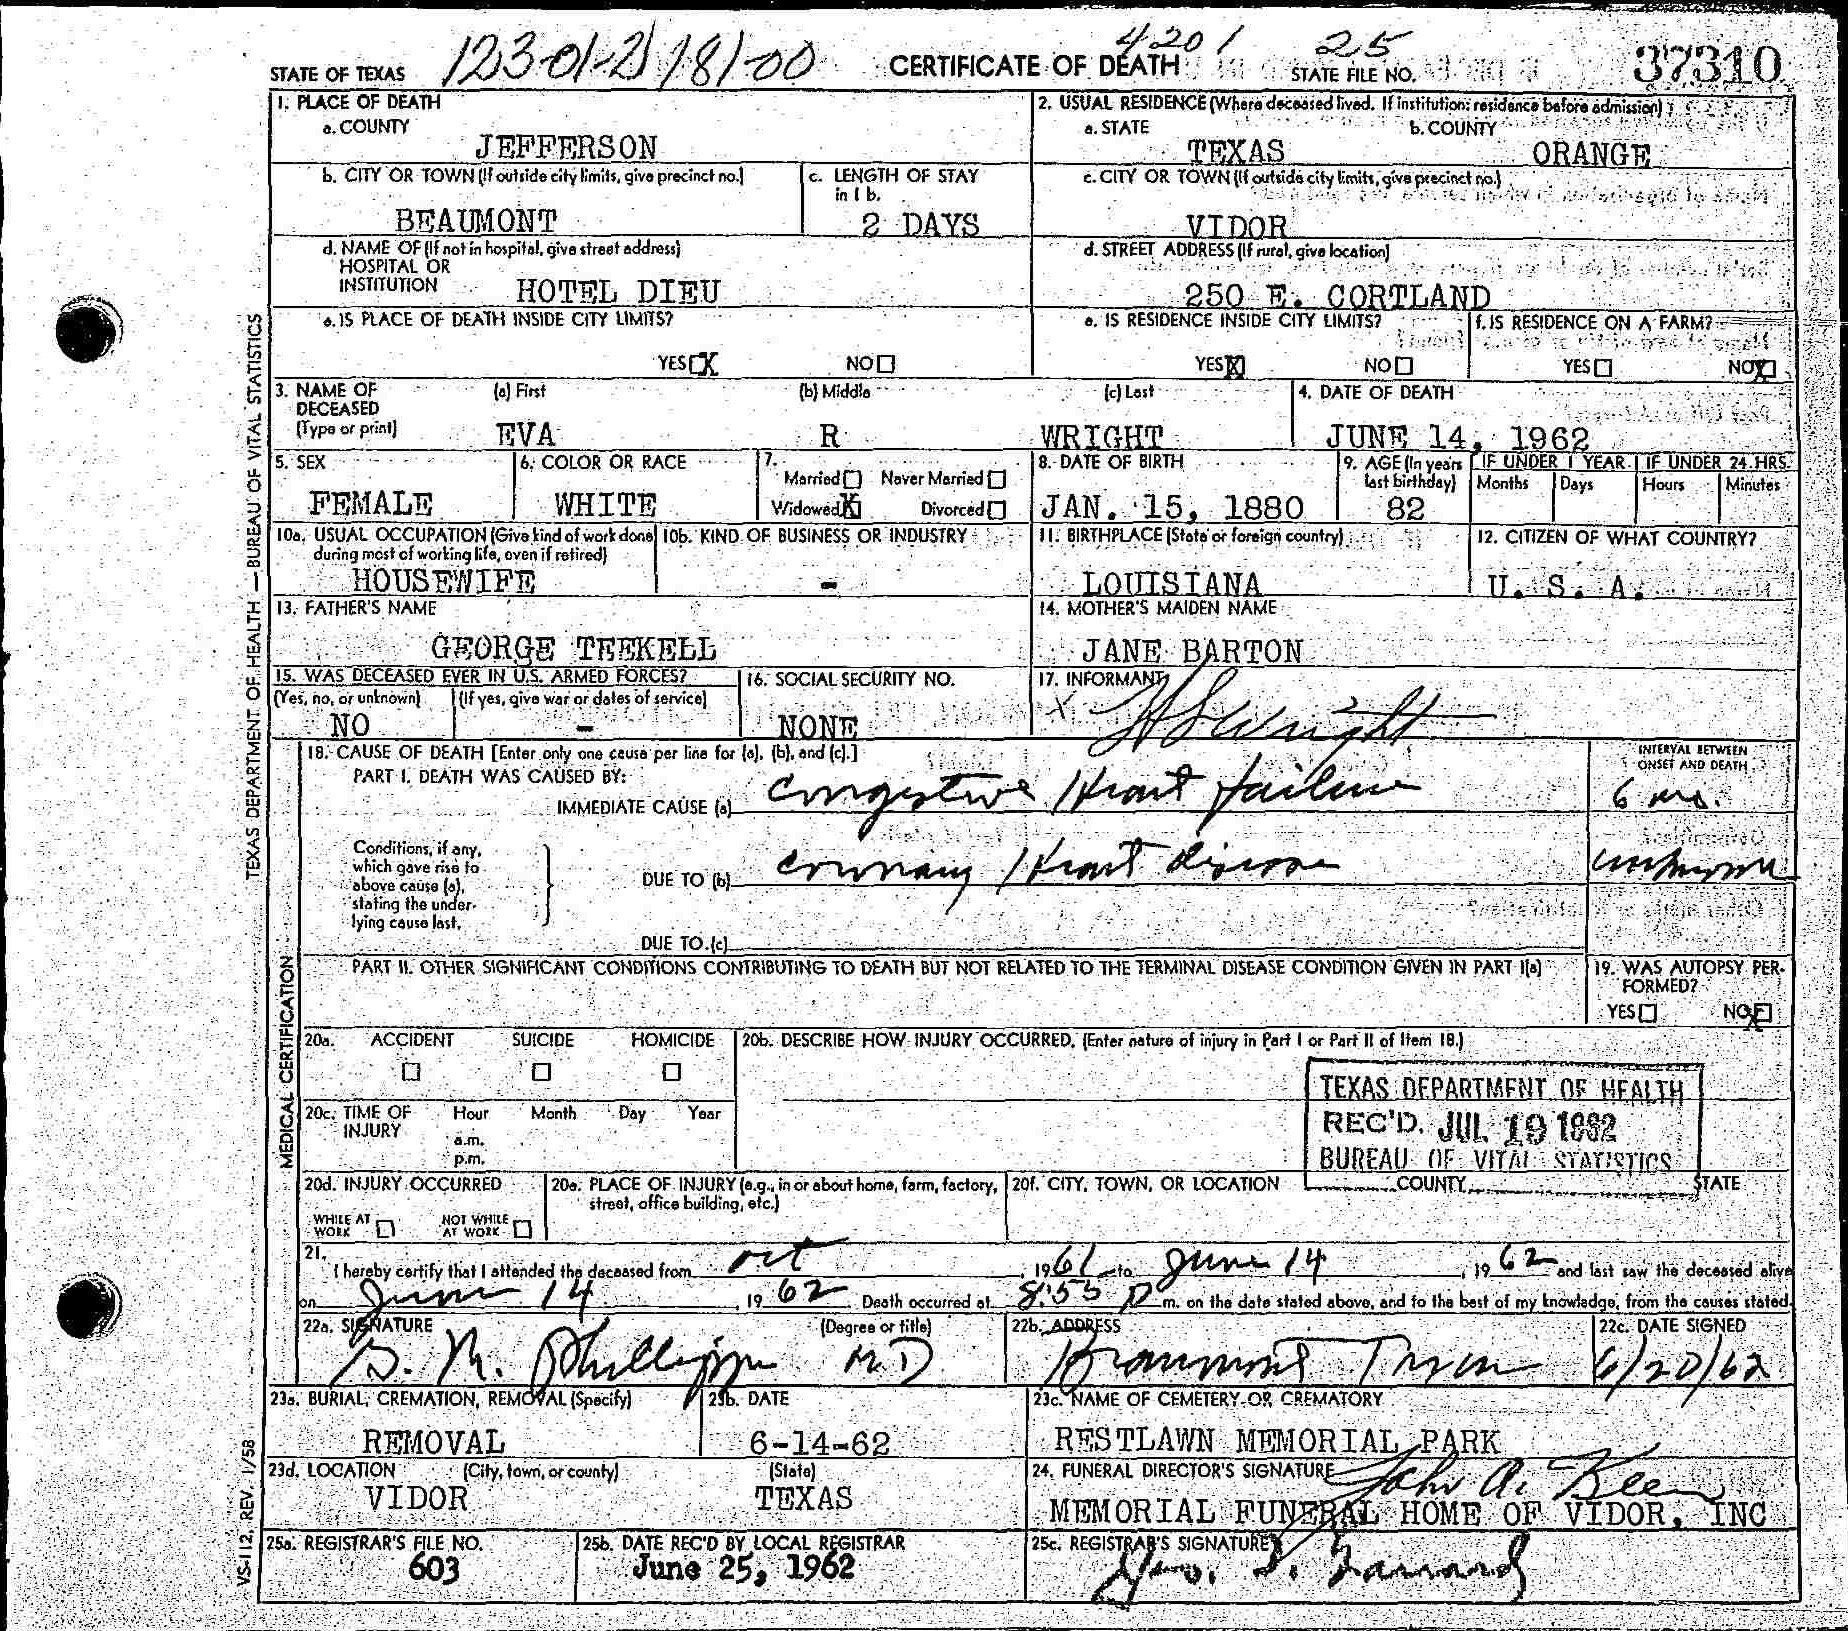 STATE OF TEXAS 123-01-2 181-00 CERTIFICATE OF DEATH 4201 25 STATE FILE NO. 37310
1. PLACE OF DEATH
a. COUNTY
JEFFERSON
2. USUAL RESIDENCE (Where deceased lived. If institution: residence before admission)
a. STATE b. COUNTY
TEXAS ORANGE
b. CITY OR TOWN (If outside city limits, give precinct no.)
BEAUMONT
c. LENGTH OF STAY
in 1 b.
2 DAYS
c. CITY OR TOWN (If outside city limits, give precinct no.)
VIDOR
d. NAME OF (If not in hospital, give street address)
HOSPITAL OR
INSTITUTION HOTEL DIEU
d. STREET ADDRESS (If rural, give location)
250 E. CORTLAND
e. IS PLACE OF DEATH INSIDE CITY LIMITS?
YES X NO
e. IS RESIDENCE INSIDE CITY LIMITS?
YES X NO
f. IS RESIDENCE ON A FARM?
YES NO X
3. NAME OF (a) First (b) Middle (c) Last
DECEASED
(Type or print) EVA R WRIGHT
4. DATE OF DEATH
JUNE 14, 1962
5. SEX
FEMALE
6. COLOR OR RACE
WHITE
7.
Married Never Married
Widowed X Divorced
8. DATE OF BIRTH
JAN. 15, 1880
9. AGE (In years
last birthday)
82
IF UNDER 1 YEAR IF UNDER 24 HRS.
Months Days Hours Minutes
10a. USUAL OCCUPATION (Give kind of work done
during most of working life, even if retired)
HOUSEWIFE
10b. KIND OF BUSINESS OR INDUSTRY
-
11. BIRTHPLACE (State or foreign country)
LOUISIANA
12. CITIZEN OF WHAT COUNTRY?
U. S. A.
13. FATHER'S NAME
GEORGE TEEKELL
14. MOTHER'S MAIDEN NAME
JANE BARTON
15. WAS DECEASED EVER IN U.S. ARMED FORCES?
(Yes, no, or unknown) (If yes, give war or dates of service)
NO -
16. SOCIAL SECURITY NO.
NONE
17. INFORMANT
X Wright
18. CAUSE OF DEATH [Enter only one cause per line for (a), (b), and (c).]
PART I. DEATH WAS CAUSED BY:
IMMEDIATE CAUSE (a) Congestive Heart failure
INTERVAL BETWEEN
ONSET AND DEATH
6 mo.
Conditions, if any,
which gave rise to
above cause (a),
stating the under-
lying cause last.
DUE TO (b) coronary Heart disease
unknown
DUE TO (c)
PART II. OTHER SIGNIFICANT CONDITIONS CONTRIBUTING TO DEATH BUT NOT RELATED TO THE TERMINAL DISEASE CONDITION GIVEN IN PART I(a)
19. WAS AUTOPSY PER-
FORMED?
YES NO X
20a. ACCIDENT SUICIDE HOMICIDE
20b. DESCRIBE HOW INJURY OCCURRED. (Enter nature of injury in Part I or Part II of Item 18.)
TEXAS DEPARTMENT OF HEALTH
REC'D. JUL 19 1962
BUREAU OF VITAL STATISTICS
20c. TIME OF Hour Month Day Year
INJURY
a.m.
p.m.
20d. INJURY OCCURRED
WHILE AT
WORK
NOT WHILE
AT WORK
20e. PLACE OF INJURY (e.g., in or about home, farm, factory,
street, office building, etc.)
20f. CITY, TOWN, OR LOCATION COUNTY STATE
21.
I hereby certify that I attended the deceased from oct 1961 to June 14, 1962 and last saw the deceased alive
on June 14, 1962 Death occurred at 8:55 P m. on the date stated above, and to the best of my knowledge, from the causes stated.
22a. SIGNATURE (Degree or title)
Phillips M.D
22b. ADDRESS
Beaumont Texas
22c. DATE SIGNED
6/20/62
23a. BURIAL, CREMATION, REMOVAL (Specify)
REMOVAL
23b. DATE
6-14-62
23c. NAME OF CEMETERY OR CREMATORY
RESTLAWN MEMORIAL PARK
23d. LOCATION (City, town, or county) (State)
VIDOR TEXAS
24. FUNERAL DIRECTOR'S SIGNATURE John A.
MEMORIAL FUNERAL HOME OF VIDOR, INC
25a. REGISTRAR'S FILE NO.
603
25b. DATE REC'D BY LOCAL REGISTRAR
June 25, 1962
25c. REGISTRAR'S SIGNATURE
TEXAS DEPARTMENT OF HEALTH — BUREAU OF VITAL STATISTICS
MEDICAL CERTIFICATION
VS-112, REV. 1/58